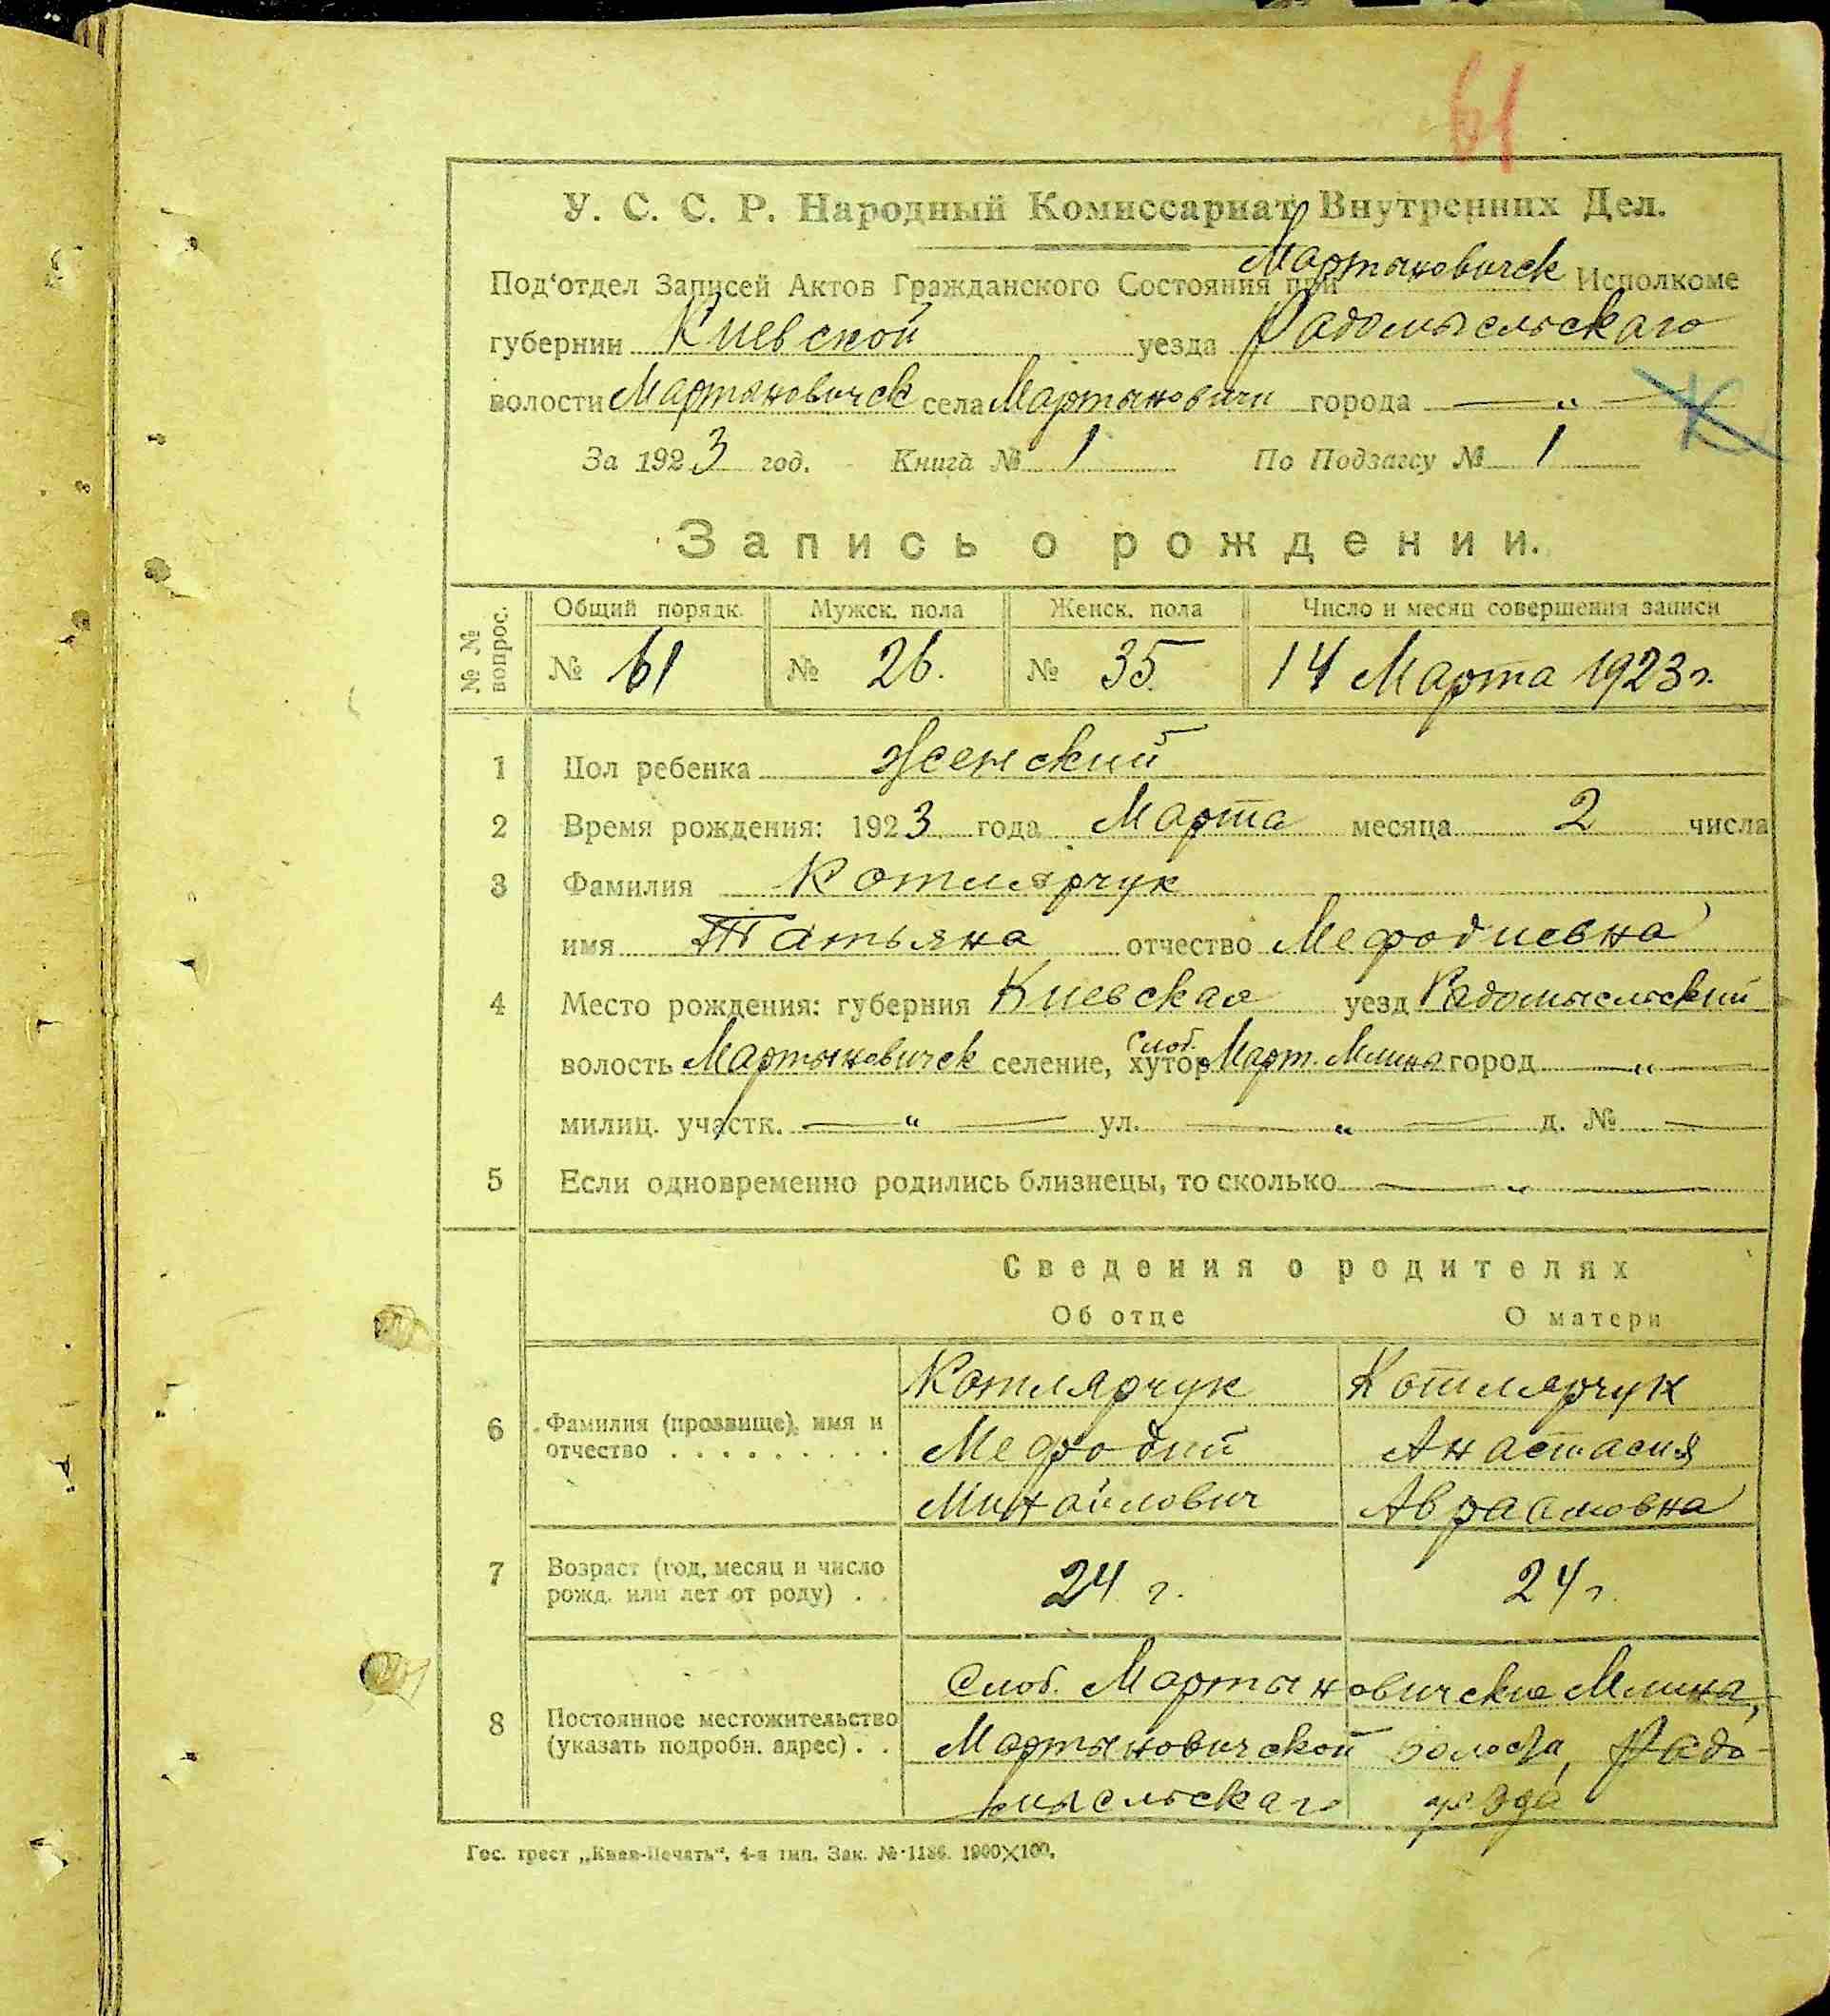 61
У. С. С. Р. Народный Комиссариат Внутренних Дел.
Под'отдел Записей Актов Гражданского Состояния при Мартыновическ Исполкоме
губернии Киевской уезда Радомысльскаго
волости Мартыновическ села Мартыновичи города — „ —
За 1923 год. Книга № 1 По Подзагсу № 1
Запись о рождении.
№ № вопрос. Общий порядк. Мужск. пола Женск. пола Число и месяц совершения записи
№ 61 № 26. № 35. 14 Марта 1923 г.
1 Пол ребенка Женский
2 Время рождения: 1923 года Марта месяца 2 числа
3 Фамилия Котлярчук
имя Татьяна отчество Мефодиевна
4 Место рождения: губерния Киевская уезд Радомысльский
волость Мартыновическ селение, хутор слоб. Март. Млины город — „ —
милиц. участк. — „ — ул. — „ — д. № —
5 Если одновременно родились близнецы, то сколько — „ —
Сведения о родителях
Об отце О матери
Котлярчук Котлярчук
6 Фамилия (прозвище), имя и
отчество . . . . . . . . . Мефодий Анастасия
Михайлович Авраамовна
7 Возраст (год, месяц и число
рожд. или лет от роду) . . 24 г. 24 г.
Слоб. Мартыновичские Млины,
8 Постоянное местожительство
(указать подробн. адрес) . . Мартыновичской волости, Радо-
мысльскаго уезда
Гос. трест „Киев-Печать“, 4-я тип. Зак. № 1186. 1000×100.